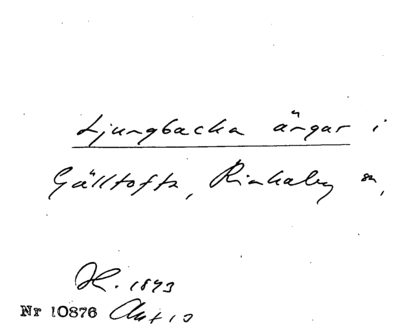 Ljungbacka ängar i
Gälltofta, Rinkaby sn,
H. 1843
Nr 10876 Akt 10